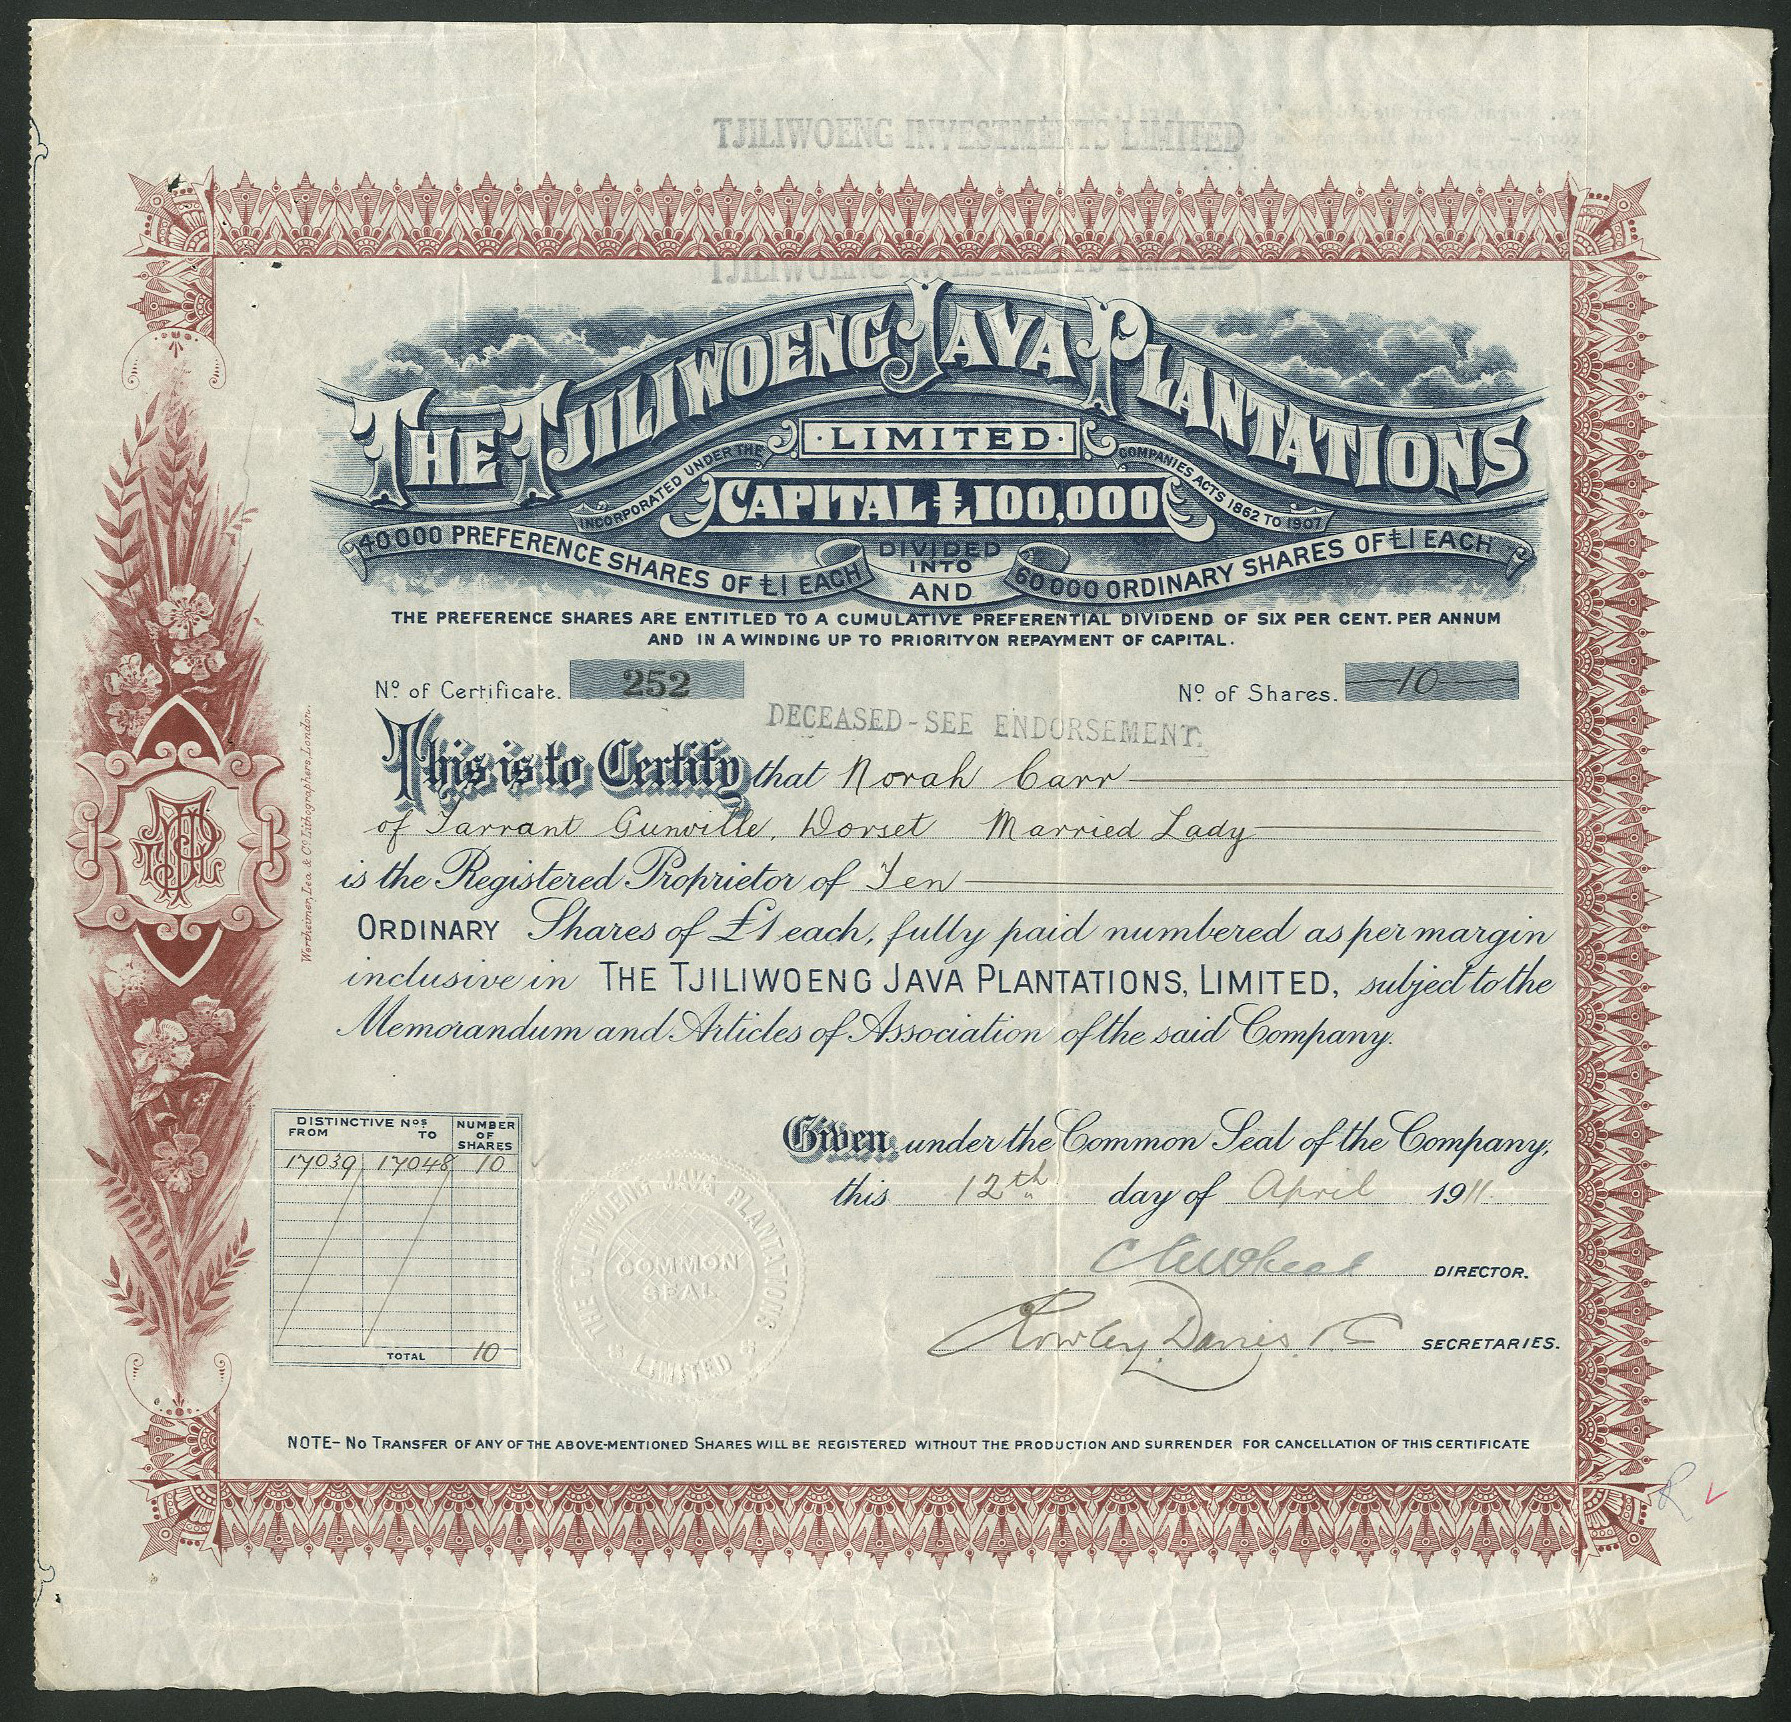 TJILIWOENG INVESTMENTS LIMITED
TJILIWOENG INVESTMENTS LIMITED
THE TJILIWOENG JAVA PLANTATIONS
LIMITED
INCORPORATED UNDER THE COMPANIES ACTS 1862 TO 1907
CAPITAL £100,000
DIVIDED
INTO
40000 PREFERENCE SHARES OF £1 EACH AND 60000 ORDINARY SHARES OF £1 EACH
THE PREFERENCE SHARES ARE ENTITLED TO A CUMULATIVE PREFERENTIAL DIVIDEND OF SIX PER CENT. PER ANNUM
AND IN A WINDING UP TO PRIORITY ON REPAYMENT OF CAPITAL.
No. of Certificate. 252 No. of Shares. 10
DECEASED - SEE ENDORSEMENT.
This is to Certify that Norah Carr
of Tarrant Gunville, Dorset Married Lady
is the Registered Proprietor of Ten
ORDINARY Shares of £1 each, fully paid numbered as per margin
inclusive in THE TJILIWOENG JAVA PLANTATIONS, LIMITED, subject to the
Memorandum and Articles of Association of the said Company.
Wertheimer, Lea & Co. Lithographers, London.
DISTINCTIVE Nos NUMBER
FROM TO OF
SHARES
17039 17048 10
TOTAL 10
THE TJILIWOENG JAVA PLANTATIONS
LIMITED
COMMON
SEAL
Given under the Common Seal of the Company,
this 12th day of April 1911.
DIRECTOR.
Rowley Davies SECRETARIES.
NOTE- No TRANSFER OF ANY OF THE ABOVE-MENTIONED SHARES WILL BE REGISTERED WITHOUT THE PRODUCTION AND SURRENDER FOR CANCELLATION OF THIS CERTIFICATE